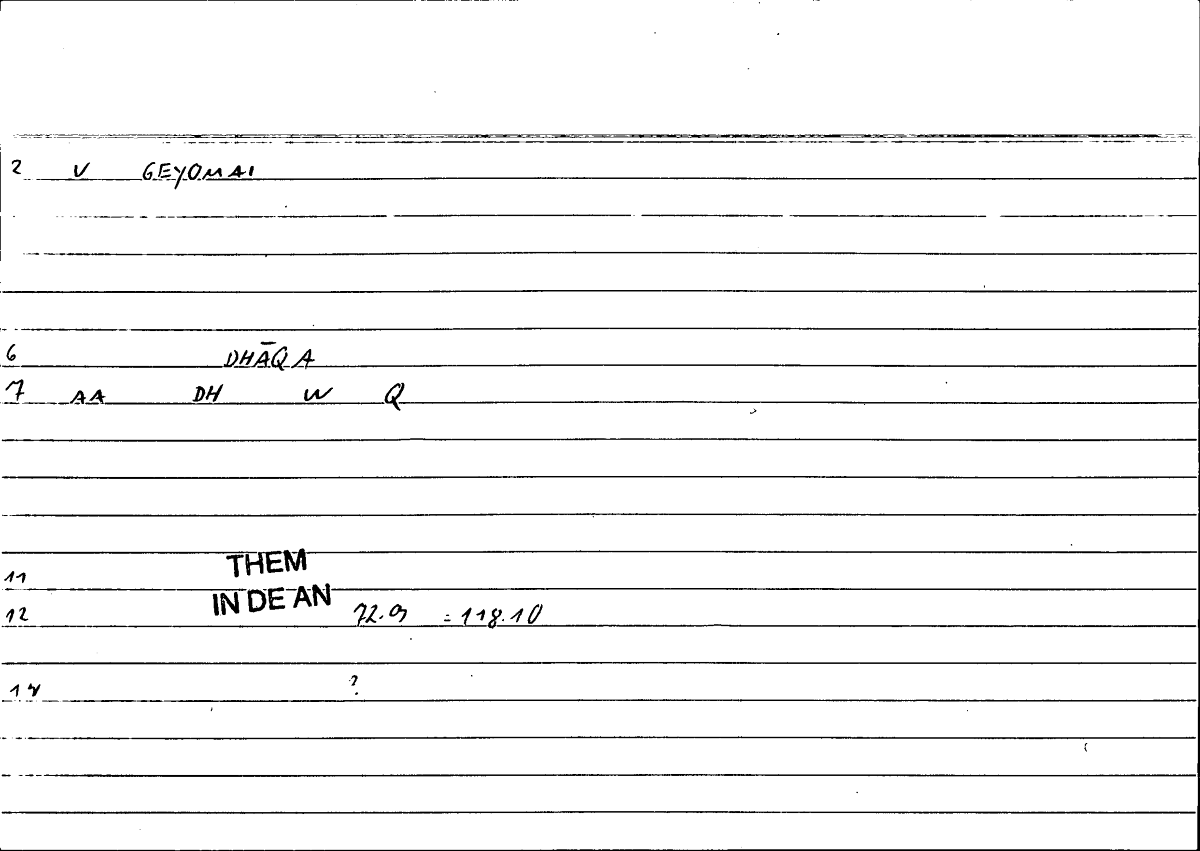 2 V GEYOMAI
6 DHĀQA
7 AA DH W Q
11 THEM
12 IN DE AN 72.9 =118.10
14 ?